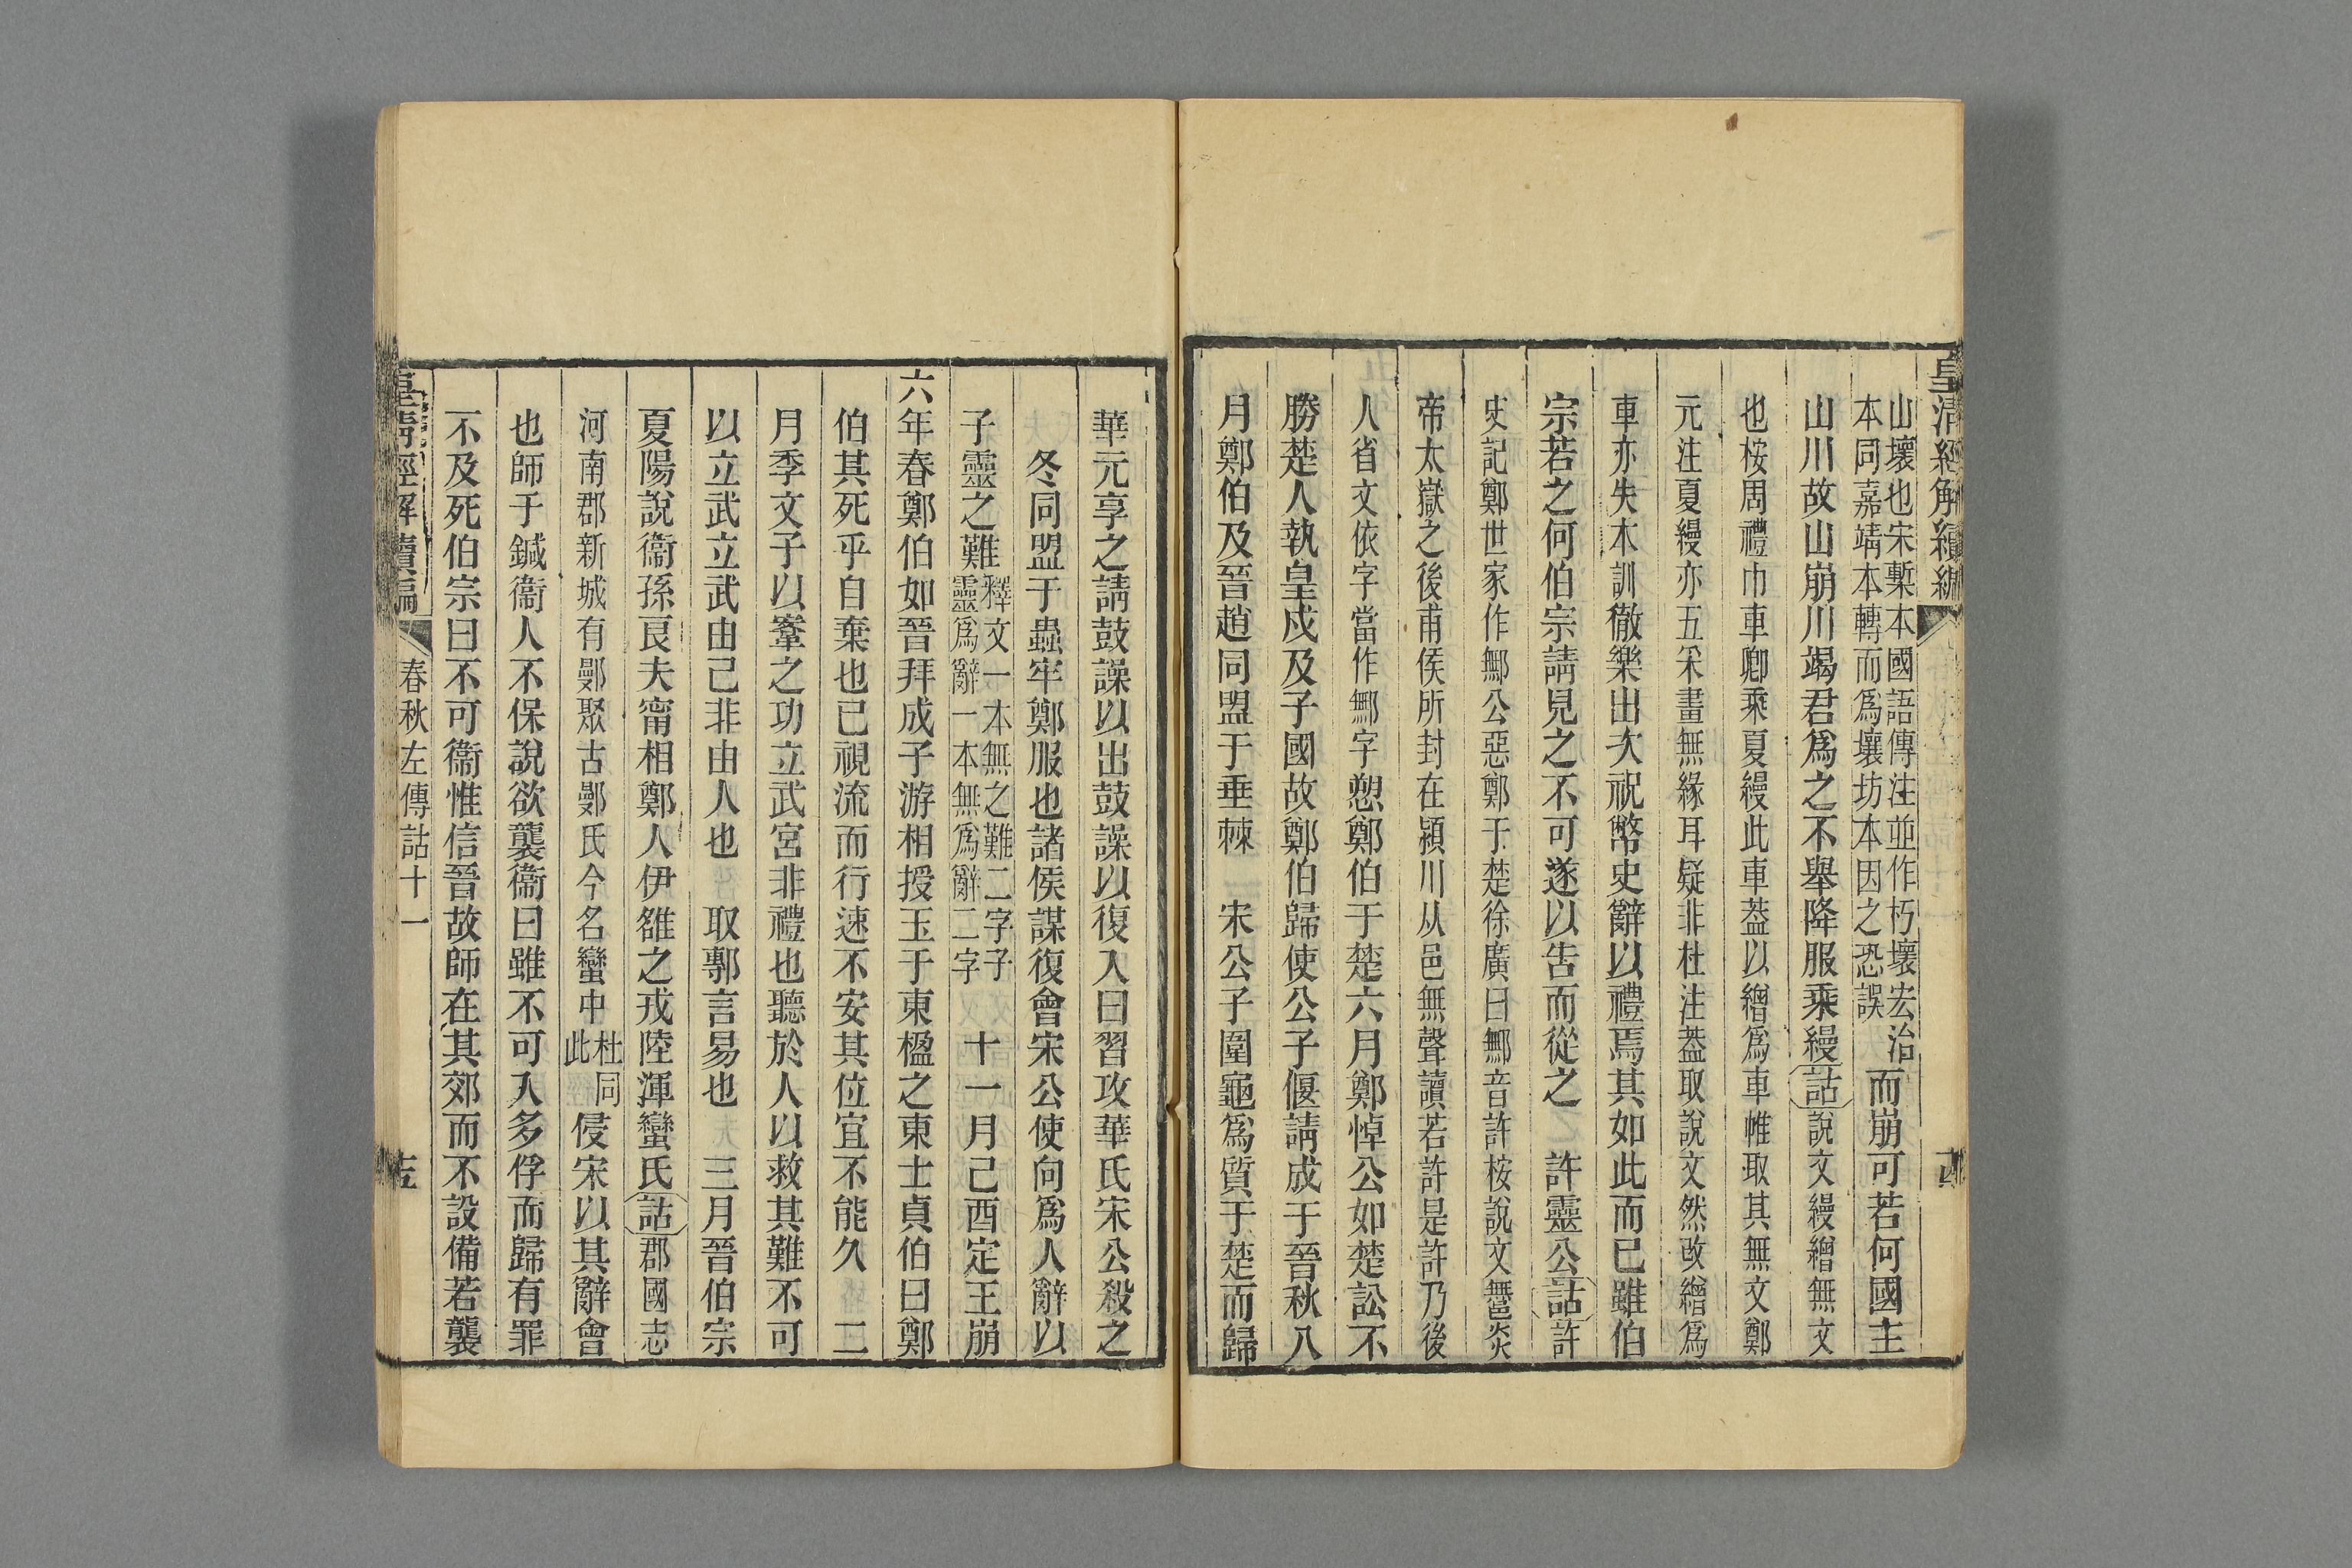 皇淸經解續編
山壞也宋槧本國語傳注並作朽壞宏治
本同嘉靖本轉而爲壤坊本因之恐誤
而崩可若何國主
山川故山崩川竭君爲之不舉降服乘縵詁說文縵繒無文
也桉周禮巾車卿乘夏縵此車葢以繒爲車帷取其無文鄭
元注夏縵亦五采畫無緣耳疑非杜注葢取說文然改繒爲
車亦失本訓徹樂出次祝幣史辭以禮焉其如此而已雖伯
宗若之何伯宗請見之不可遂以告而從之 許靈公詁許
史記鄭世家作鄦公惡鄭于楚徐廣曰鄦音許桉說文鄦炎
帝太嶽之後甫侯所封在潁川从邑無聲讀若許是許乃後
人省文依字當作鄦字愬鄭伯于楚六月鄭悼公如楚訟不
勝楚人執皇戍及子國故鄭伯歸使公子偃請成于晉秋八
月鄭伯及晉趙同盟于垂棘 宋公子圍龜爲質于楚而歸
華元享之請鼓譟以出鼓譟以復入曰習攻華氏宋公殺之
冬同盟于蟲牢鄭服也諸侯謀復會宋公使向爲人辭以
子靈之難
釋文一本無之難二字子
靈爲辭一本無爲辭二字
十一月己酉定王崩
六年春鄭伯如晉拜成子游相授玉于東楹之東士貞伯曰鄭
伯其死乎自棄也已視流而行速不安其位宜不能久 二
月季文子以鞌之功立武宮非禮也聽於人以救其難不可
以立武立武由己非由人也 取鄟言易也 三月晉伯宗
夏陽說衞孫良夫甯相鄭人伊雒之戎陸渾蠻氏詁郡國志
河南郡新城有鄤聚古鄤氏今名蠻中
杜同
此
侵宋以其辭會
也師于鍼衞人不保說欲襲衞曰雖不可入多俘而歸有罪
不及死伯宗曰不可衞惟信晉故師在其郊而不設備若襲
春秋左傳詁十一